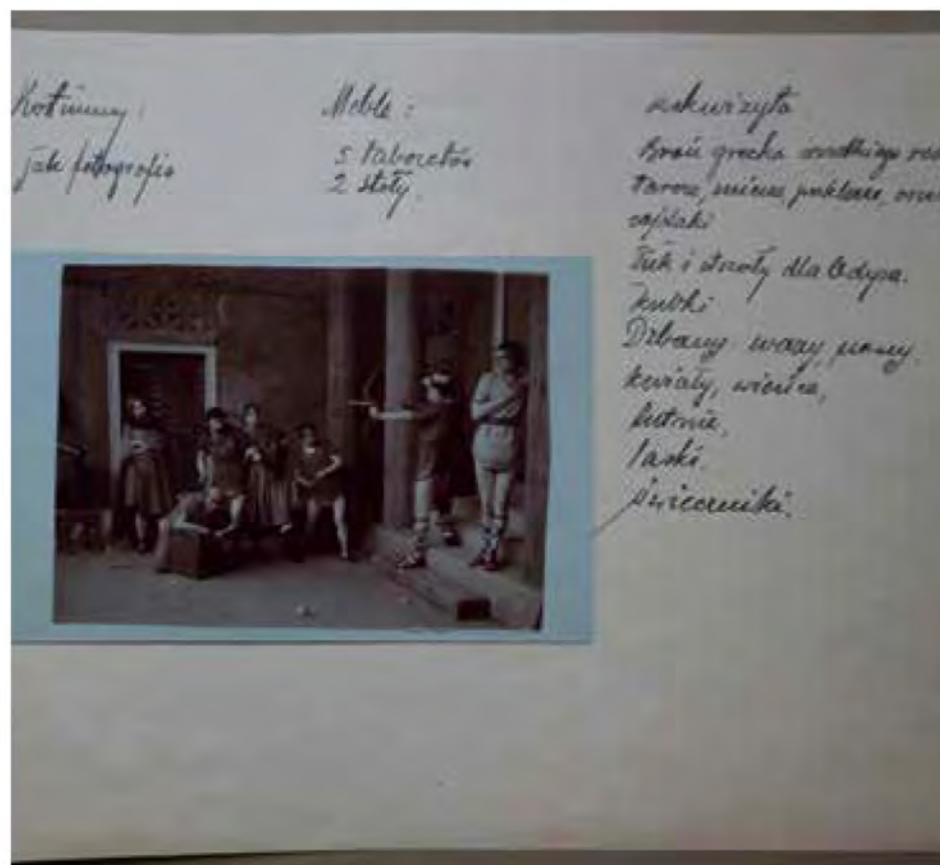 Kostiumy:
jak fotografia
Meble:
5 taboretów
2 stoły.
rekwizyta
Broń grecka wielkiego
tarcze, miecze,
sajdaki
Łuk i strzały dla Odysa.
kubki
Dzbany wazy,
kwiaty, wieńce,
lutnie,
laski.
świeczniki.